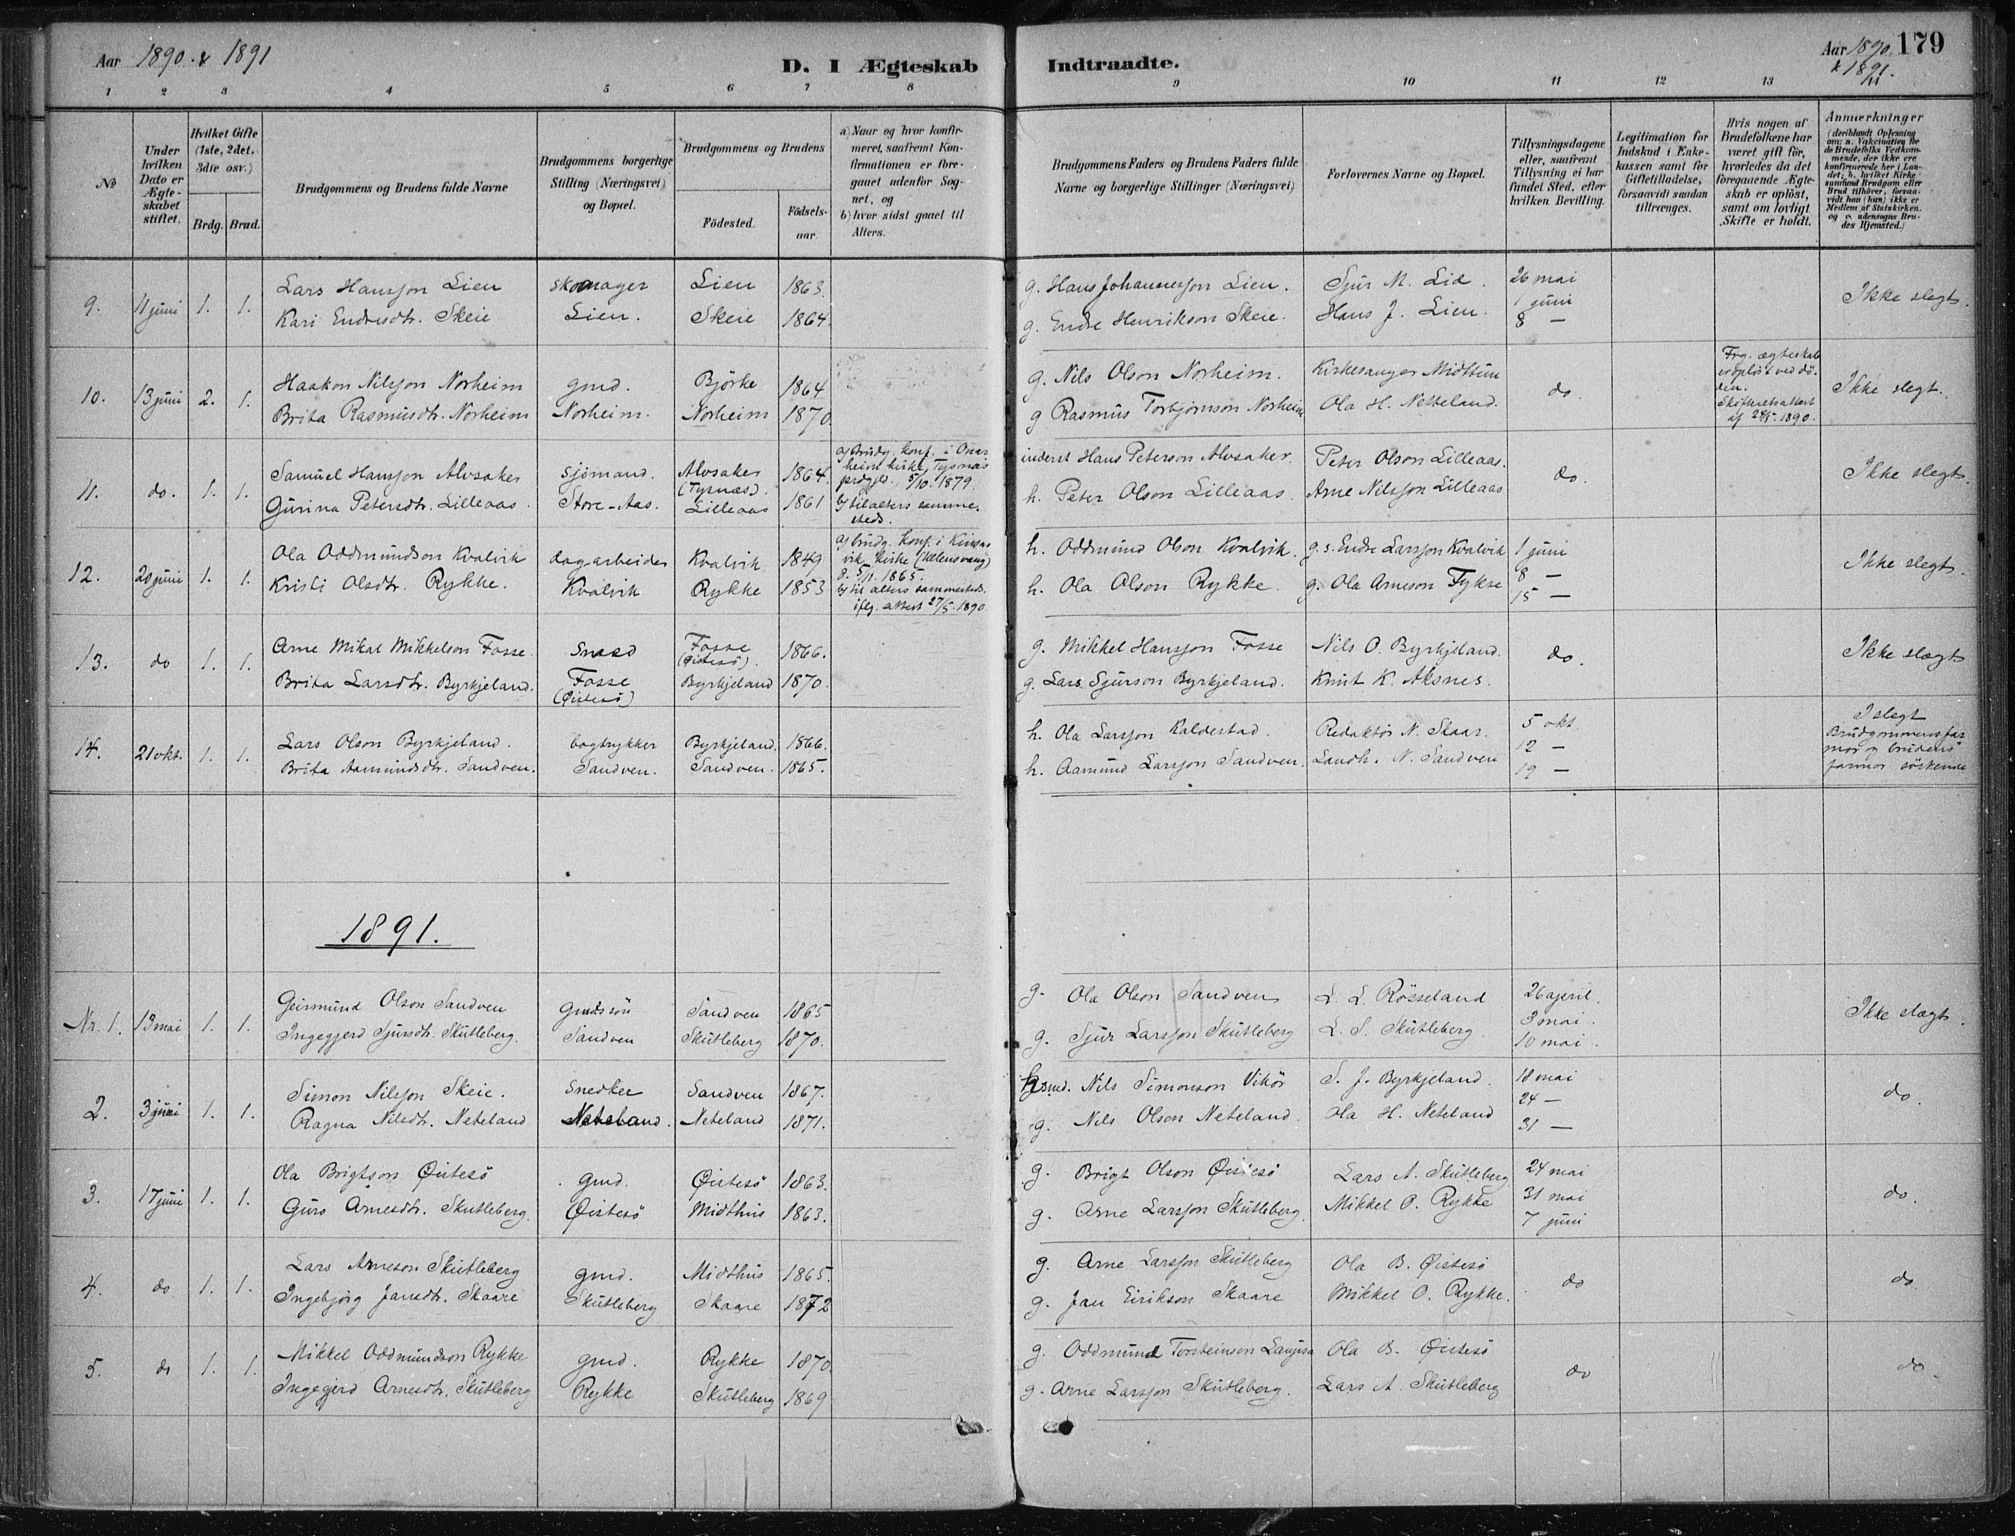 Aar 1890 & 1891
D. I Ægteskab Indtraadte.
Aar 1890 & 1891. 179
1 2 3 4 5 6 7 8 9 10 11 12 13 14
No
Under hvilken Dato er Ægteskabet stiftet.
Hvilket Gifte (1ste, 2det, 3die osv.)
Brdg. Brud.
Brudgommens og Brudens fulde Navne
Brudgommens borgerlige Stilling (Næringsvei) og Bopæl.
Brudgommens og Brudens
Födested. Födselsaar.
a) Naar og hvor konfirmeret, saafremt Konfirmationen er foregaaet udenfor Sognet, og
b) hvor sidst gaaet til Alters.
Brudgommens Faders og Brudens Faders fulde Navne og borgerlige Stillinger (Næringsvei)
Forlovernes Navne og Bopæl.
Tillysningsdagene eller, saafremt Tillysning ei har fundet Sted, efter hvilken Bevilling.
Legitimation for Indskud i Enkekassen samt for Giftetilladelse, forsaavidt saadan tiltrænges.
Hvis nogen af Brudefolkene har været gift før, hvorledes da det foregaaende Ægteskab er opløst, samt om lovligt Skifte er holdt.
Anmærkninger (deriblandt Oplysning om: a. Vakcination for de Brudefolks Vedkommende, der ikke ere konfirmerede her i Landet; b. hvilket Kirkesamfund Brudgom eller Brud tilhører, forsaavidt han (hun) ikke er Medlem af Statskirken. og c. udensogns Brudes Hjemsted.)
9. 11 juni 1. 1. Lars Hansson Lien skomager Lien 1863. g. Hans Johannesson Lien. Sjur M. Lid. 26 mai
Kari Endresdtr. Skeie Lien. Skeie 1864. g. Endre Henrikson Skeie. Hans J. Lien. 1 juni
8 — Ikke slegt.
10. 13 juni 2. 1. Haakon Nilsson Norheim gmd. Bjørke 1864 g. Nils Olson Norheim. Kirkesanger Midttun do. Frg. ægteskab er opløst ved døden.
Brita Rasmusdtr. Norheim Norheim. Norheim 1870. g Rasmus Torbjørnson Norheim Ola H. Netteland. Skifteretsattest af 24/5 1890. Ikke slegt.
11. do. 1. 1. Samuel Hansson Alvsaker sjømand. Alvsaker (Tysnæs). 1864. a) Brudg. konf. i Onarheim kirke, Tysnæs prgjld. 5/10 1879. inderst Hans Peterson Alvsaker. Peter Olson Lilleaas. do.
Gurina Petersdtr. Lilleaas. Store-Aas. Lilleaas 1861 b) til alters sammesteds. h. Peter Olson Lilleaas. Arne Nilsson Lilleaas Ikke slegt.
12. 20 juni 1. 1. Ola Oddmundson Kvalvik dagarbeider Kvalvik 1849 a) brudg. konf. i Kinsarvik kirke (Ullensvang) g. 5/11 1865. h. Oddmund Olson Kvalvik. g.s. Endre Larsson Kvalvik 1 juni
Kristi Olsdtr. Rykke. Kvalvik Rykke 1853 b) til alters sammesteds. iflg. attest 27/5 1890. h. Ola Olson Rykke. g. Ola Arneson Fykse 8 —
15 — Ikke slegt.
13. do 1. 1. Arne Mikal Mikkelson Fosse. Smed Fosse (Østesø). 1866. g. Mikkel Hansson Fosse Nils O. Byrkjeland. do.
Brita Larsdtr. Byrkjeland. Fosse (Østesø) Byrkjeland 1870. g. Lars Sjurson Byrkjeland. Knut K. Aksnes. Ikke slægt
14. 21 okt. 1. 1. Lars Olson Byrkjeland. bogtrykker Byrkjeland. 1866. h. Ola Larsson Kaldestad. Redaktør N. Skaar. 5 okt
Brita Aamundsdtr. Sandven. Sandven. Sandven. 1865. h. Aamund Larsson Sandven. Landh. N. Sandven 12 —
19 — I slegt Brudgommens farmor og brudens farmor søskende
1891.
Nr. 1. 13 mai 1. 1. Geirmund Olson Sandven gmdssøn Sandven 1865 g. Ola Olson Sandven L. L. Røsseland 26 april.
Ingegjerd Sjursdtr. Skutleberg. Sandven Skutleberg 1870. g. Sjur Larsson Skutleberg L. S. Skutleberg 3 mai.
10 mai. Ikke slægt.
2. 3 juni 1. 1. Simon Nilsson Skeie. snedker Sandven 1867. Nils Simonson Vikør S. J. Byrkjeland. 18 mai
Ragna Nilsdtr. Neteland Neteland. Neteland 1871. g. Nils Olson Neteland. Ola H. Neteland 24 —
31 — do.
3. 17 juni 1. 1. Ola Brigtson Øistesø gmd. Øistesø 1863. g. Brigt Olson Øistesø Lars A. Skutleberg 24 mai
Guro Arnesdtr. Skutleberg. Øistesø Midthus 1863. g. Arne Larsson Skutleberg. Mikkel O. Rykke 31 mai
7 juni do.
4. do 1. 1. Lars Arneson Skutleberg gmd. Midthus 1865. g. Arne Larsson Skutleberg Ola B. Øistesø do
Ingebjørg Jansdtr. Skaare Skutleberg Skaare 1872 g. Jan Eirikson Skaare Mikkel O. Rykke. do
5. do 1. 1. Mikkel Oddmundson Rykke gmd. Rykke 1870. g. Oddmund Torsteinson Laupsa Ola B. Øistesø do
Ingegjerd Arnesdtr. Skutleberg Rykke Skutleberg 1869 g. Arne Larsson Skutleberg. Lars A. Skutleberg do